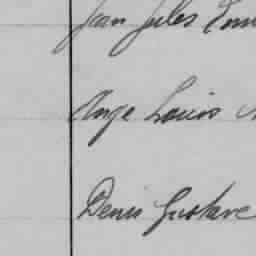 Jean Jules
Ange Louis
Denis Gustave